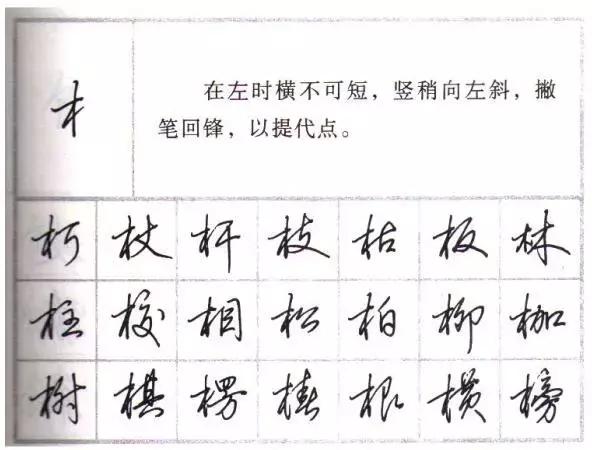 木
在左时横不可短，竖稍向左斜，撇
笔回锋，以提代点。
柯 杖 杆 枝 枯 板 林
柱 校 相 松 柏 柳 枷
树 棋 楞 根 横 榜